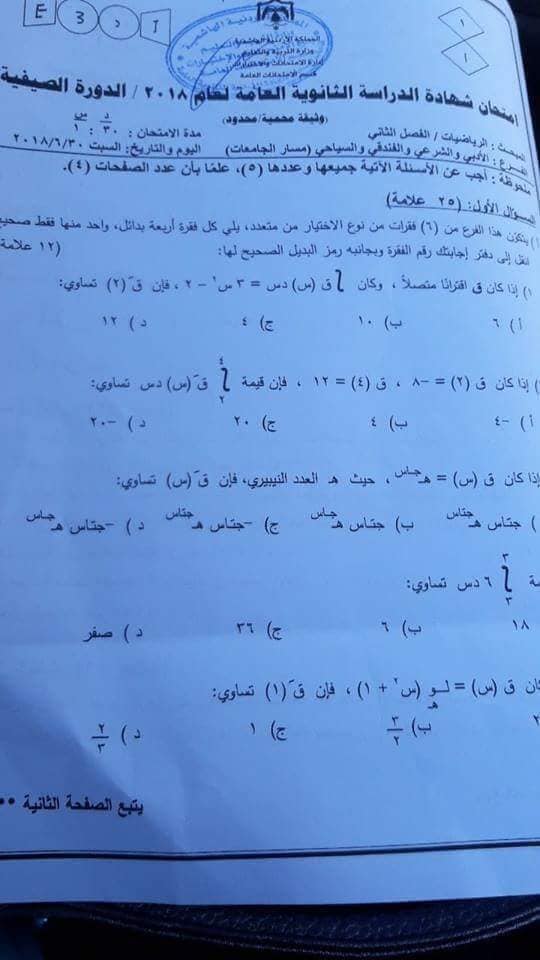 E
3
د
I
١
١
المملكة الأردنية الهاشمية
وزارة التربية والتعليم
إدارة الامتحانات والاختبارات
قسم الامتحانات العامة
امتحان شهادة الدراسة الثانوية العامة لعام ٢٠١٨ / الدورة الصيفية
(وثيقة محمية/محدود)
د س
المبحث : الرياضيات / الفصل الثاني مدة الامتحان: ٣٠ : ١
الفرع : الأدبي والشرعي والفندقي والسياحي (مسار الجامعات) اليوم والتاريخ: السبت ٢٠١٨/٦/٣٠
ملحوظة : أجب عن الأسئلة الآتية جميعها وعددها (٥)، علمًا بأن عدد الصفحات (٤).
السؤال الأول: (٢٥ علامة)
يتكون هذا الفرع من (٦) فقرات من نوع الاختيار من متعدد، يلي كل فقرة أربعة بدائل، واحد منها فقط صحيح
انقل إلى دفتر إجابتك رقم الفقرة وبجانبه رمز البديل الصحيح لها: (١٢ علامة
١) إذا كان ق اقترانًا متصلاً ، وكان ∫ ق (س) دس = ٣ س٢ − ٢ ، فإن قَ (٢) تساوي:
أ ) ٦ ب) ١٠ ج) ٤ د ) ١٢
) إذا كان ق (٢) = −٨ ، ق (٤) = ١٢ ، فإن قيمة ∫٢٤ قَ (س) دس تساوي:
أ ) −٤ ب) ٤ ج) ٢٠ د ) −٢٠
إذا كان ق (س) = هـ جاس ، حيث هـ العدد النيبيري، فإن قَ (س) تساوي:
) جتاس هـ جتاس ب) جتاس هـ جاس ج) −جتاس هـ جتاس د ) −جتاس هـ جاس
ـة ∫٣٣ ٦ دس تساوي:
١٨ ب) ٦ ج) ٣٦ د ) صفر
كان ق (س) = لــو هـ (س٢ + ١) ، فإن قَ (١) تساوي:
٢ ب) ٣/٢ ج) ١ د ) ٢/٣
يتبع الصفحة الثانية ••